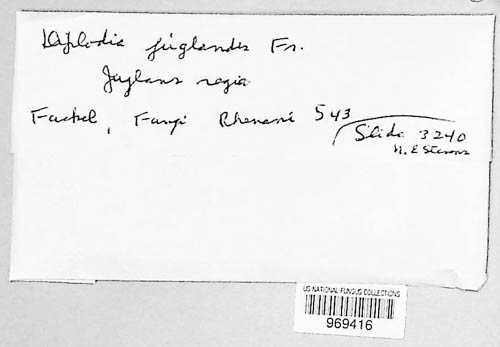 Diplodia juglandis Fr.
Juglans regia
Fuckel, Fungi Rhenani 543
Slide 3240
N. E Stevens
US NATIONAL FUNGUS COLLECTIONS
969416